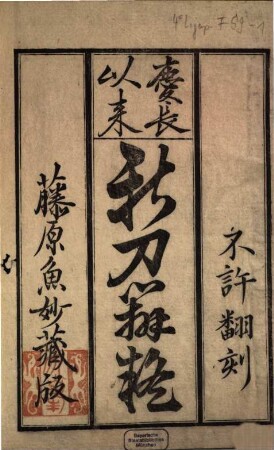 4° L.jap. F 59-1
不許翻刻
慶長
以来
新刀辨疑
藤原魚妙藏版
Bayerische
Staatsbibliothek
München